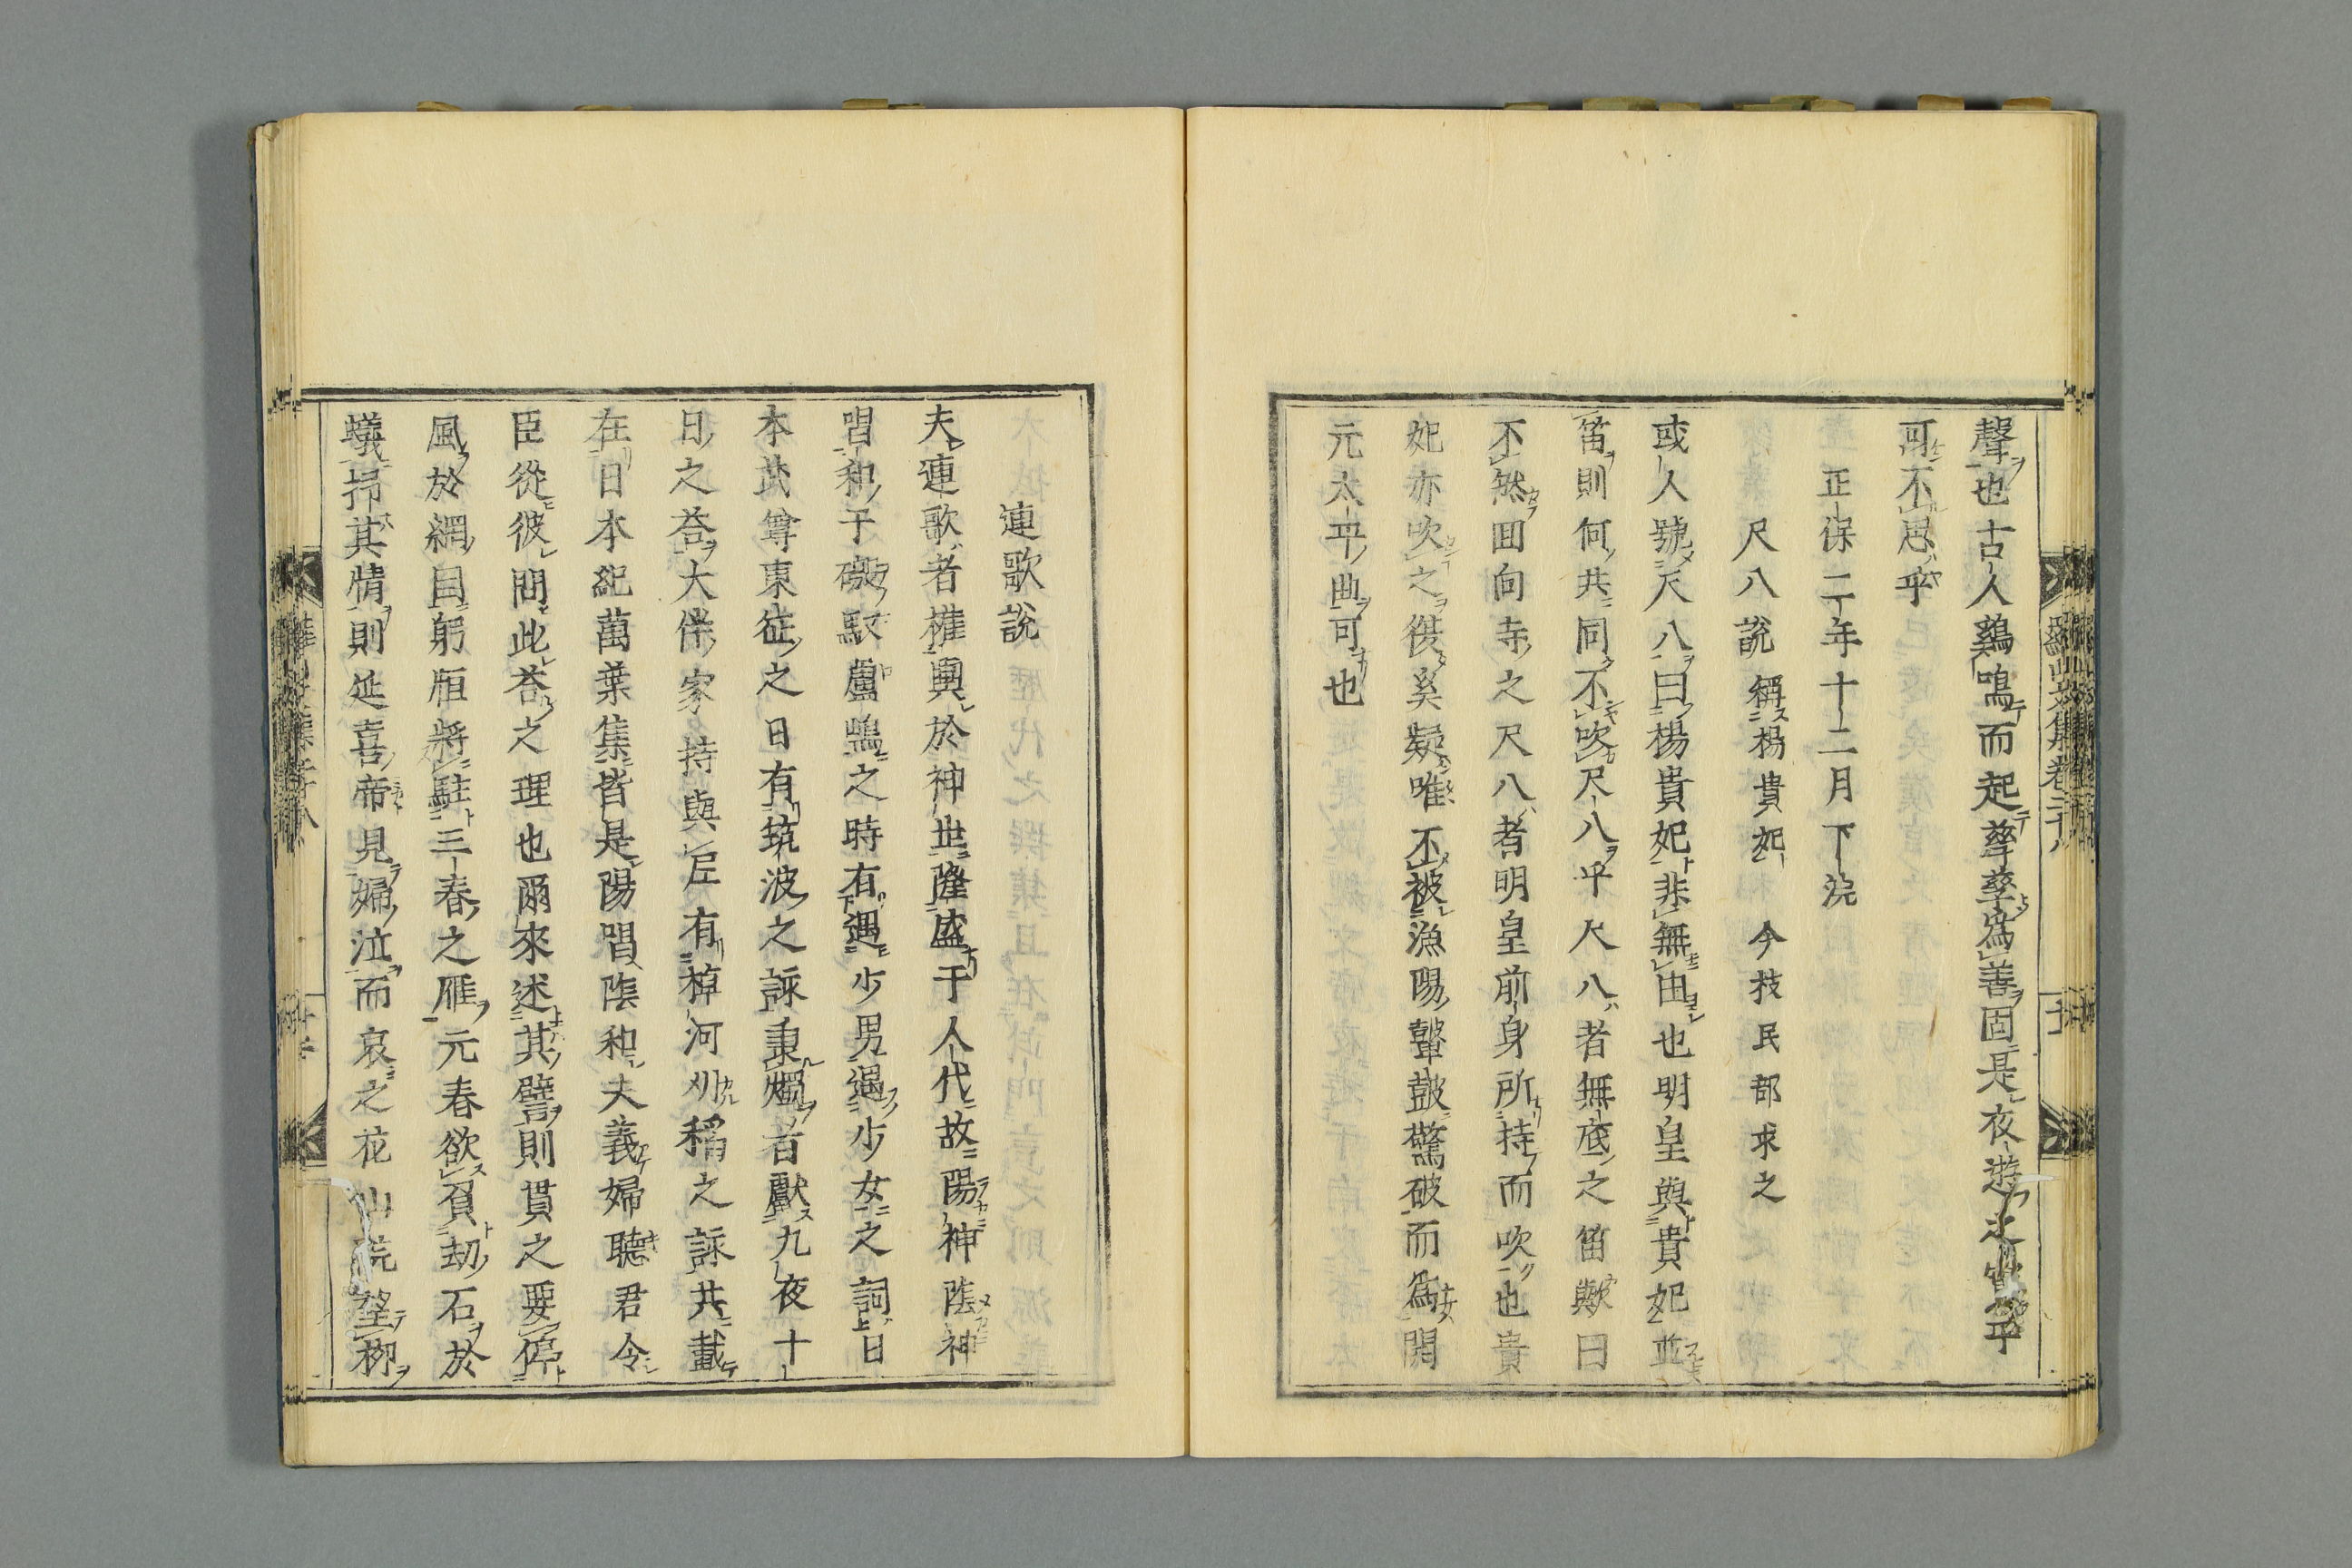 聲也古人鷄鳴而起孳孳爲善固是夜遊之
可不思乎
正保二年十二月下浣
尺八說 稱楊貴妃 今枝民部求之
或人號尺八曰楊貴妃非無由也明皇與貴妃並
笛則何共同不吹尺八乎尺八者無底之笛歟曰
不然囬向寺之尺八者明皇前身所持而吹也貴
妃亦吹之復奚疑唯不被漁陽鼙鼓驚破而爲開
元太平曲可也
連歌說
夫連歌者權輿於神世隆盛于人代故陽神陰神
唱和于磤馭盧嶋之時有遇少男遇少女之詞日
本武尊東征之日有筑波之詠秉燭者獻九夜十
日之答大伴家持與尼有棹河刈稻之詠共載
在日本紀萬葉集皆是陽唱陰和夫義婦聽君令
臣從彼問此答之理也爾來述其譬則貫之要停
風於網目躬恒將駐三春之雁元春欲負劫石於
蟻掃其情則延喜帝見婦泣而哀之花山院望柳
羅山文集卷